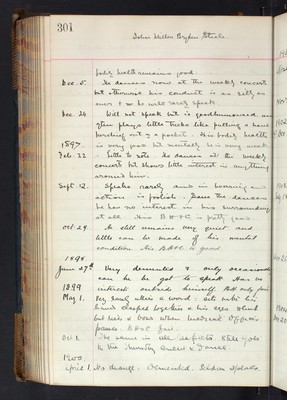 301
John Millar Bryden Steele.
bodily health remains good.
Dec. 5. He dances now at the weekly concert
but otherwise his conduct is as silly as
ever & he will rarely speak.
Dec. 24 Will not speak but is goodhumoured and
often plays little tricks like pulling a hand-
kerchief out of a pocket. His bodily health
1897 is very good but mentally he is very weak
Feb. 22 Little to note. He dances at the weekly
concerts but shows little interest in anything
around him.
Sept. 12. Speaks rarely and in bearing and
action is foolish. Save the dances
he has no interest in his surroundings
at all. His B H is pretty good
Oct 29. He still remains very quiet and
little can be made of his mental
condition. His B.H. is good
1898
June 27th Very demented & only occasionally
can he be got to speak. Has no
1899 interest outside himself. B.H. only fair
May 1. Says a word: sits with his
hands clasped together & his eyes shut
but has a bow when medical officer
passes. B.H. fair.
Oct 1. The same in all respects. Still goes
to the Thursday & Dance.
1900.
April 1. No change. Demented. Seldom speaks.